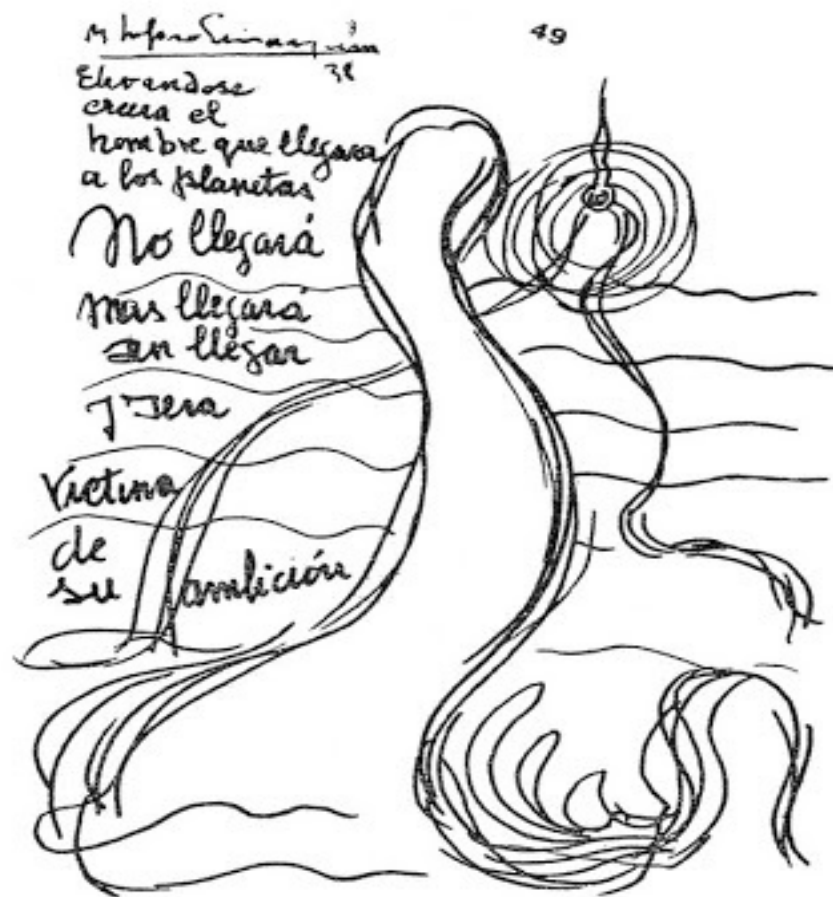 49
38
Elevandose
creera el
hombre que llegara
a los planetas
No llegará
mas llegará
sin llegar
y sera
victima
de
su ambición